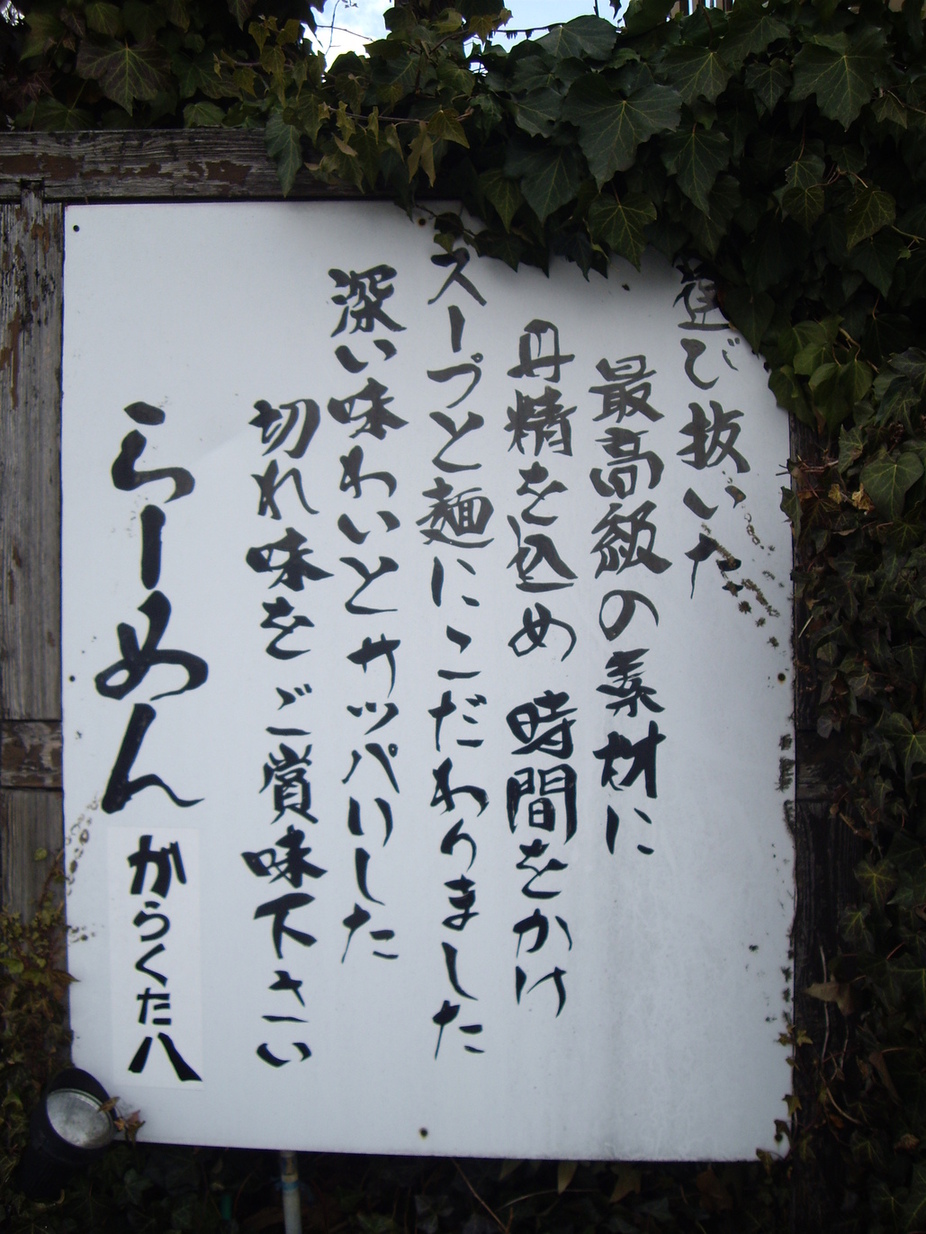 選び抜いた
最高級の素材に
丹精を込め時間をかけ
スープと麺にこだわりました
深い味わいとサッパリした
切れ味をご賞味下さい
らーめん がらくた八